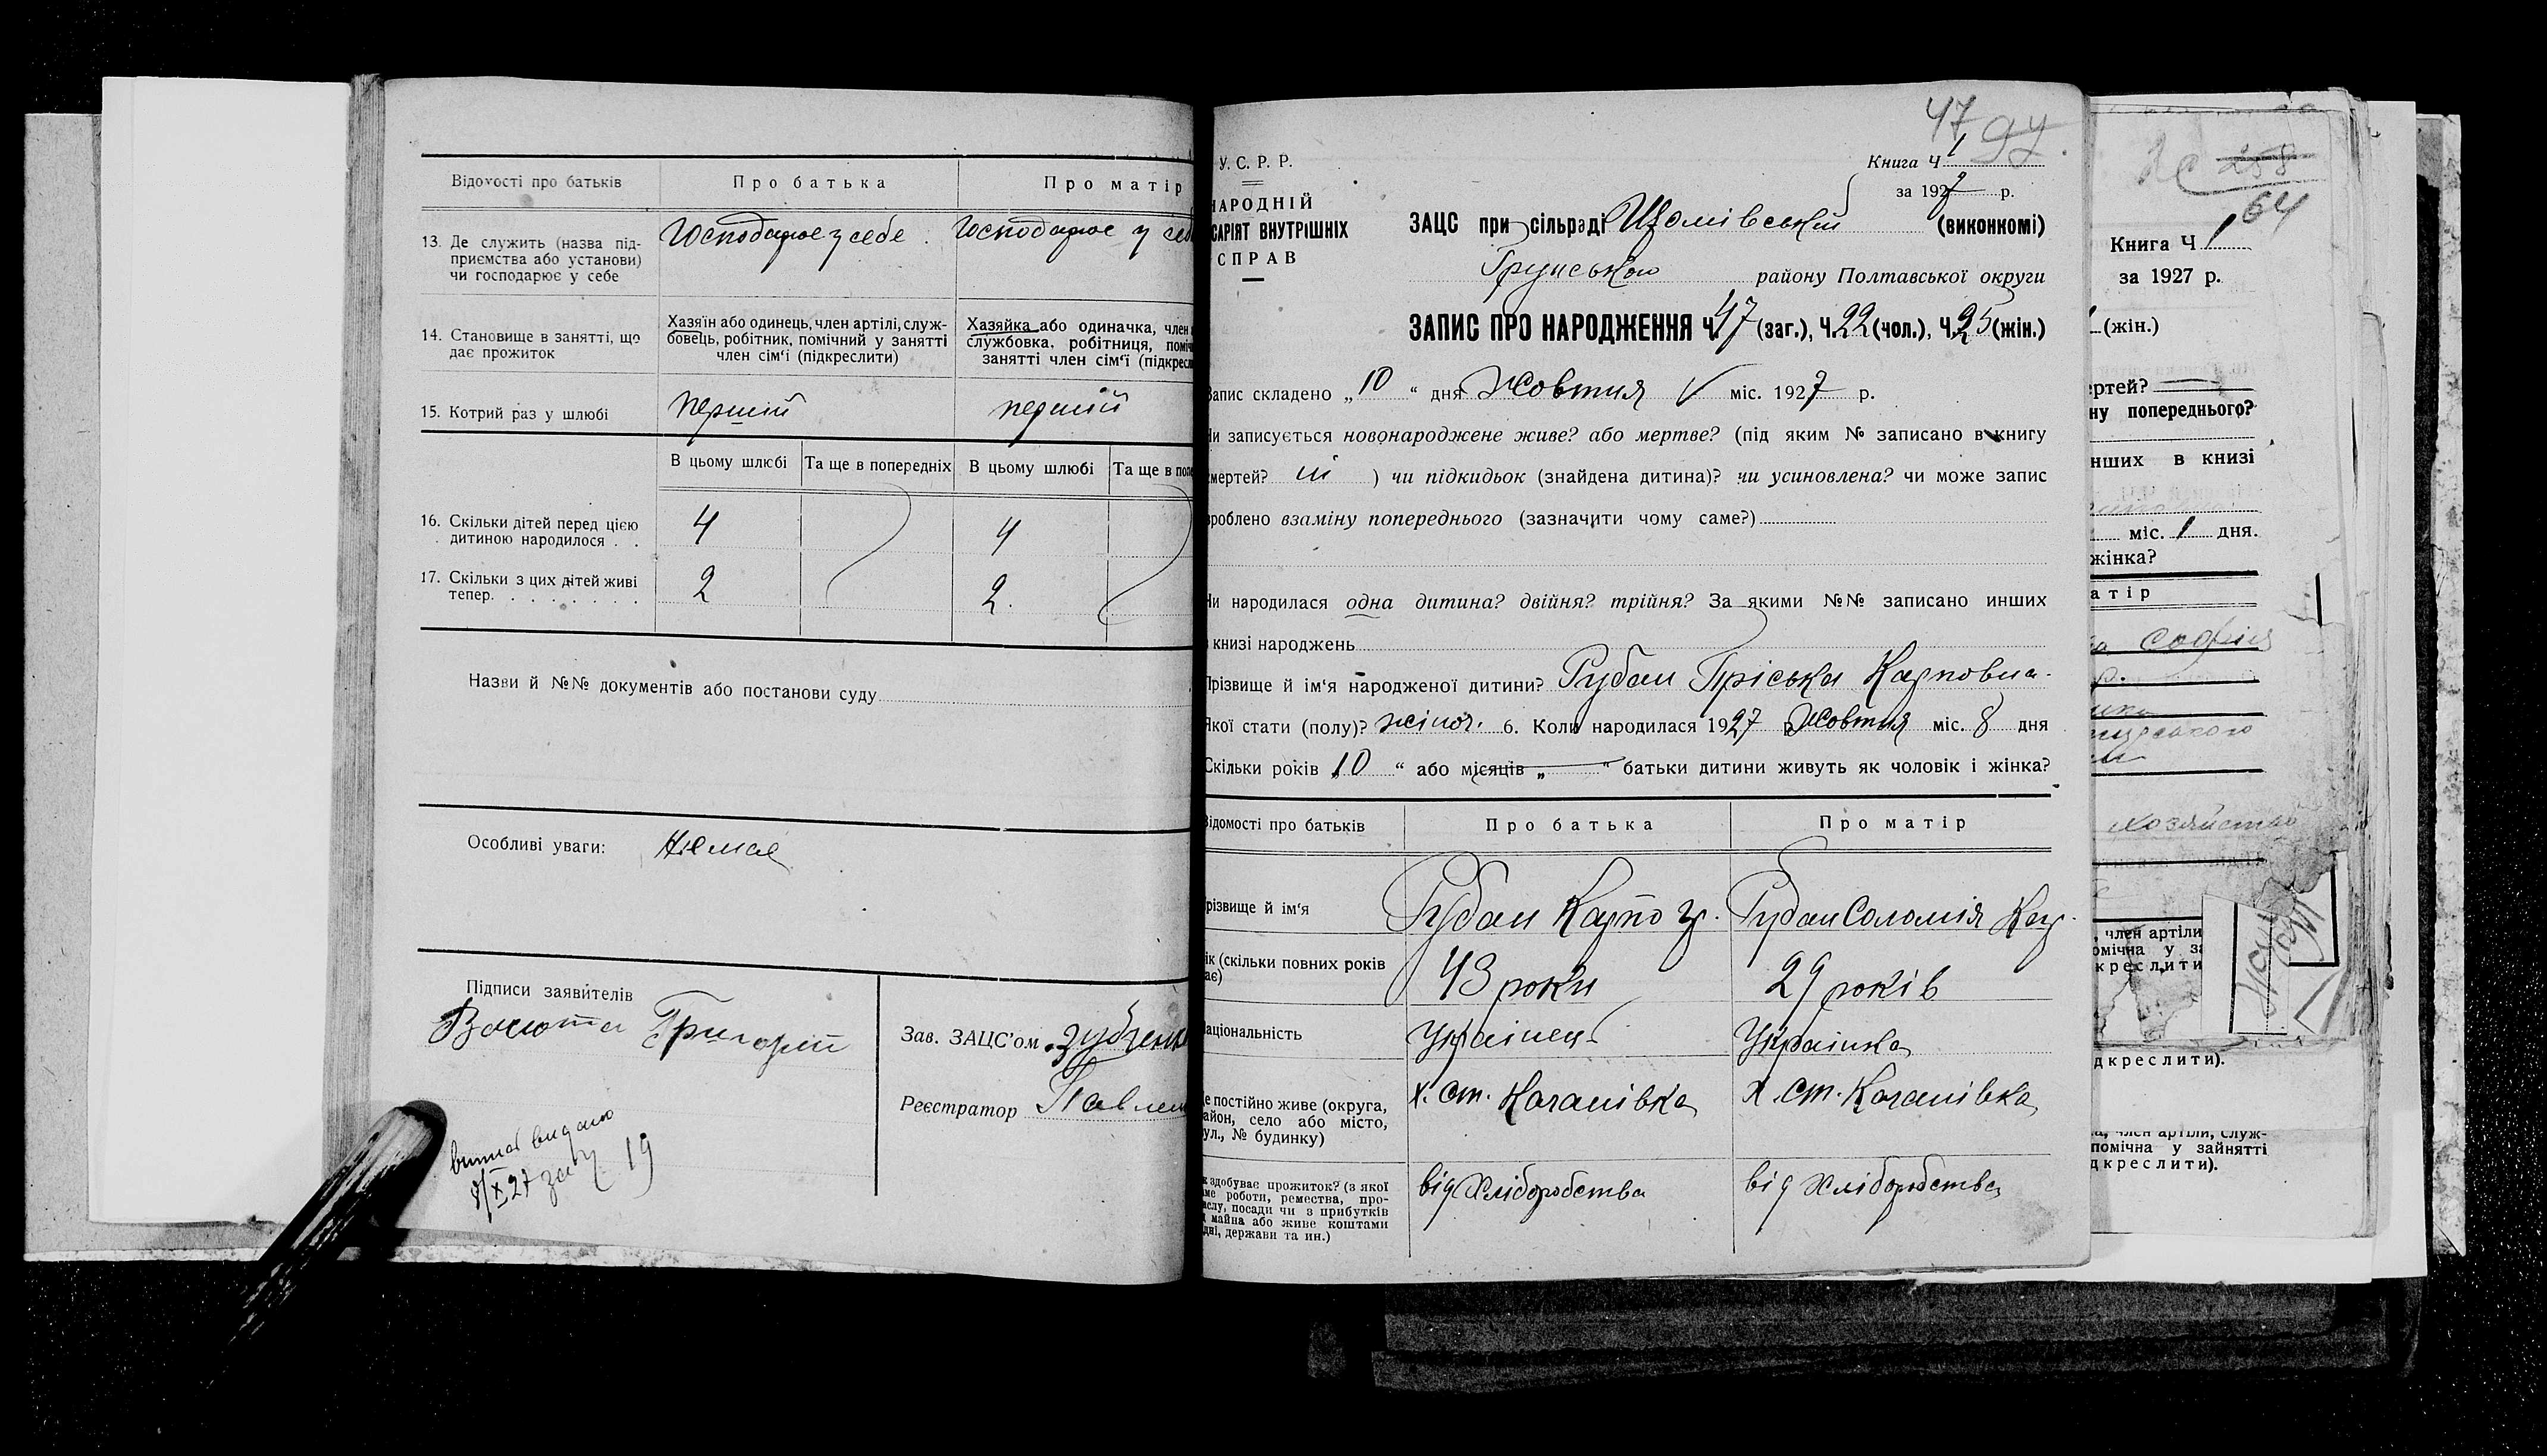 Відомості про батьків
Про батька
Про матір
13. Де служить (назва під-
приємства або установи)
чи господарює у себе
Господарює у себе.
Господарює у себ
14. Становище в занятті, що
дає прожиток
Хазяїн або одинець, член артілі, служ-
бовець, робітник, помічний у занятті
член сім'ї (підкреслити)
Хазяйка або одиначка, член
службовка, робітниця, поміч
занятті член сім'ї (підкресл
15. Котрий раз у шлюбі
перший
перший
В цьому шлюбі
Та ще в попередніх
В цьому шлюбі
Та ще в попе
16. Скільки дітей перед цією
дитиною народилося . .
4
4
17. Скільки з цих дітей живі
тепер. . . . . . . .
2
2.
Назви й №№ документів або постанови суду
Особливі уваги:
Немає
Підписи заявителів
Григорій
Зав. ЗАЦС'ом
Зубченк
Реєстратор
Павлен
47
97
У. С. Р. Р.
НАРОДНІЙ
САРІЯТ ВНУТРІШНІХ
СПРАВ
Книга Ч 1
за 1927 р.
ЗАЦС при сільраді
(виконкомі)
Грунського району Полтавської округи
ЗАПИС ПРО НАРОДЖЕННЯ Ч. 47 (заг.), Ч. 22 (чол.), Ч. 25 (жін.)
Запис складено „ 10 “ дня Жовтня міс. 1927 р.
Чи записується новонароджене живе? або мертве? (під яким № записано в книгу
смертей? ні ) чи підкидьок (знайдена дитина)? чи усиновлена? чи може запис
зроблено взаміну попереднього (зазначити чому саме?)
Чи народилася одна дитина? двійня? трійня? За якими №№ записано инших
в книзі народжень
Прізвище й ім'я народженої дитини? Рубан Пріська Карповна.
Якої стати (полу)? жіноч. 6. Коли народилася 1927 р Жовтня міс. 8 дня
Скільки років „ 10 “ або місяців „ “ батьки дитини живуть як чоловік і жінка?
Відомості про батьків
Про батька
Про матір
різвище й ім'я
Рубан Карпо Гр.
Рубан Соломія Кар.
ік (скільки повних років
ає)
43 роки
29 років
аціональність
Українець
Українка
е постійно живе (округа,
айон, село або місто,
ул., № будинку)
х. ст. Качанівка
х. ст. Качанівка
к здобуває прожиток? (з якої
ме роботи, ремества, про-
ислу, посади чи з прибутків
майна або живе коштами
дні, держави та ин.)
від Хліборобства
від Хліборобства
64
Книга Ч 1
за 1927 р.
(жін.)
ертей?
ну попереднього?
нших в книзі
міс. 1 дня.
жінка?
атір
Софія
член артіли
омічна у за
креслити
дкреслити).
а, член артіли, служ-
помічна у зайнятті
дкреслити).